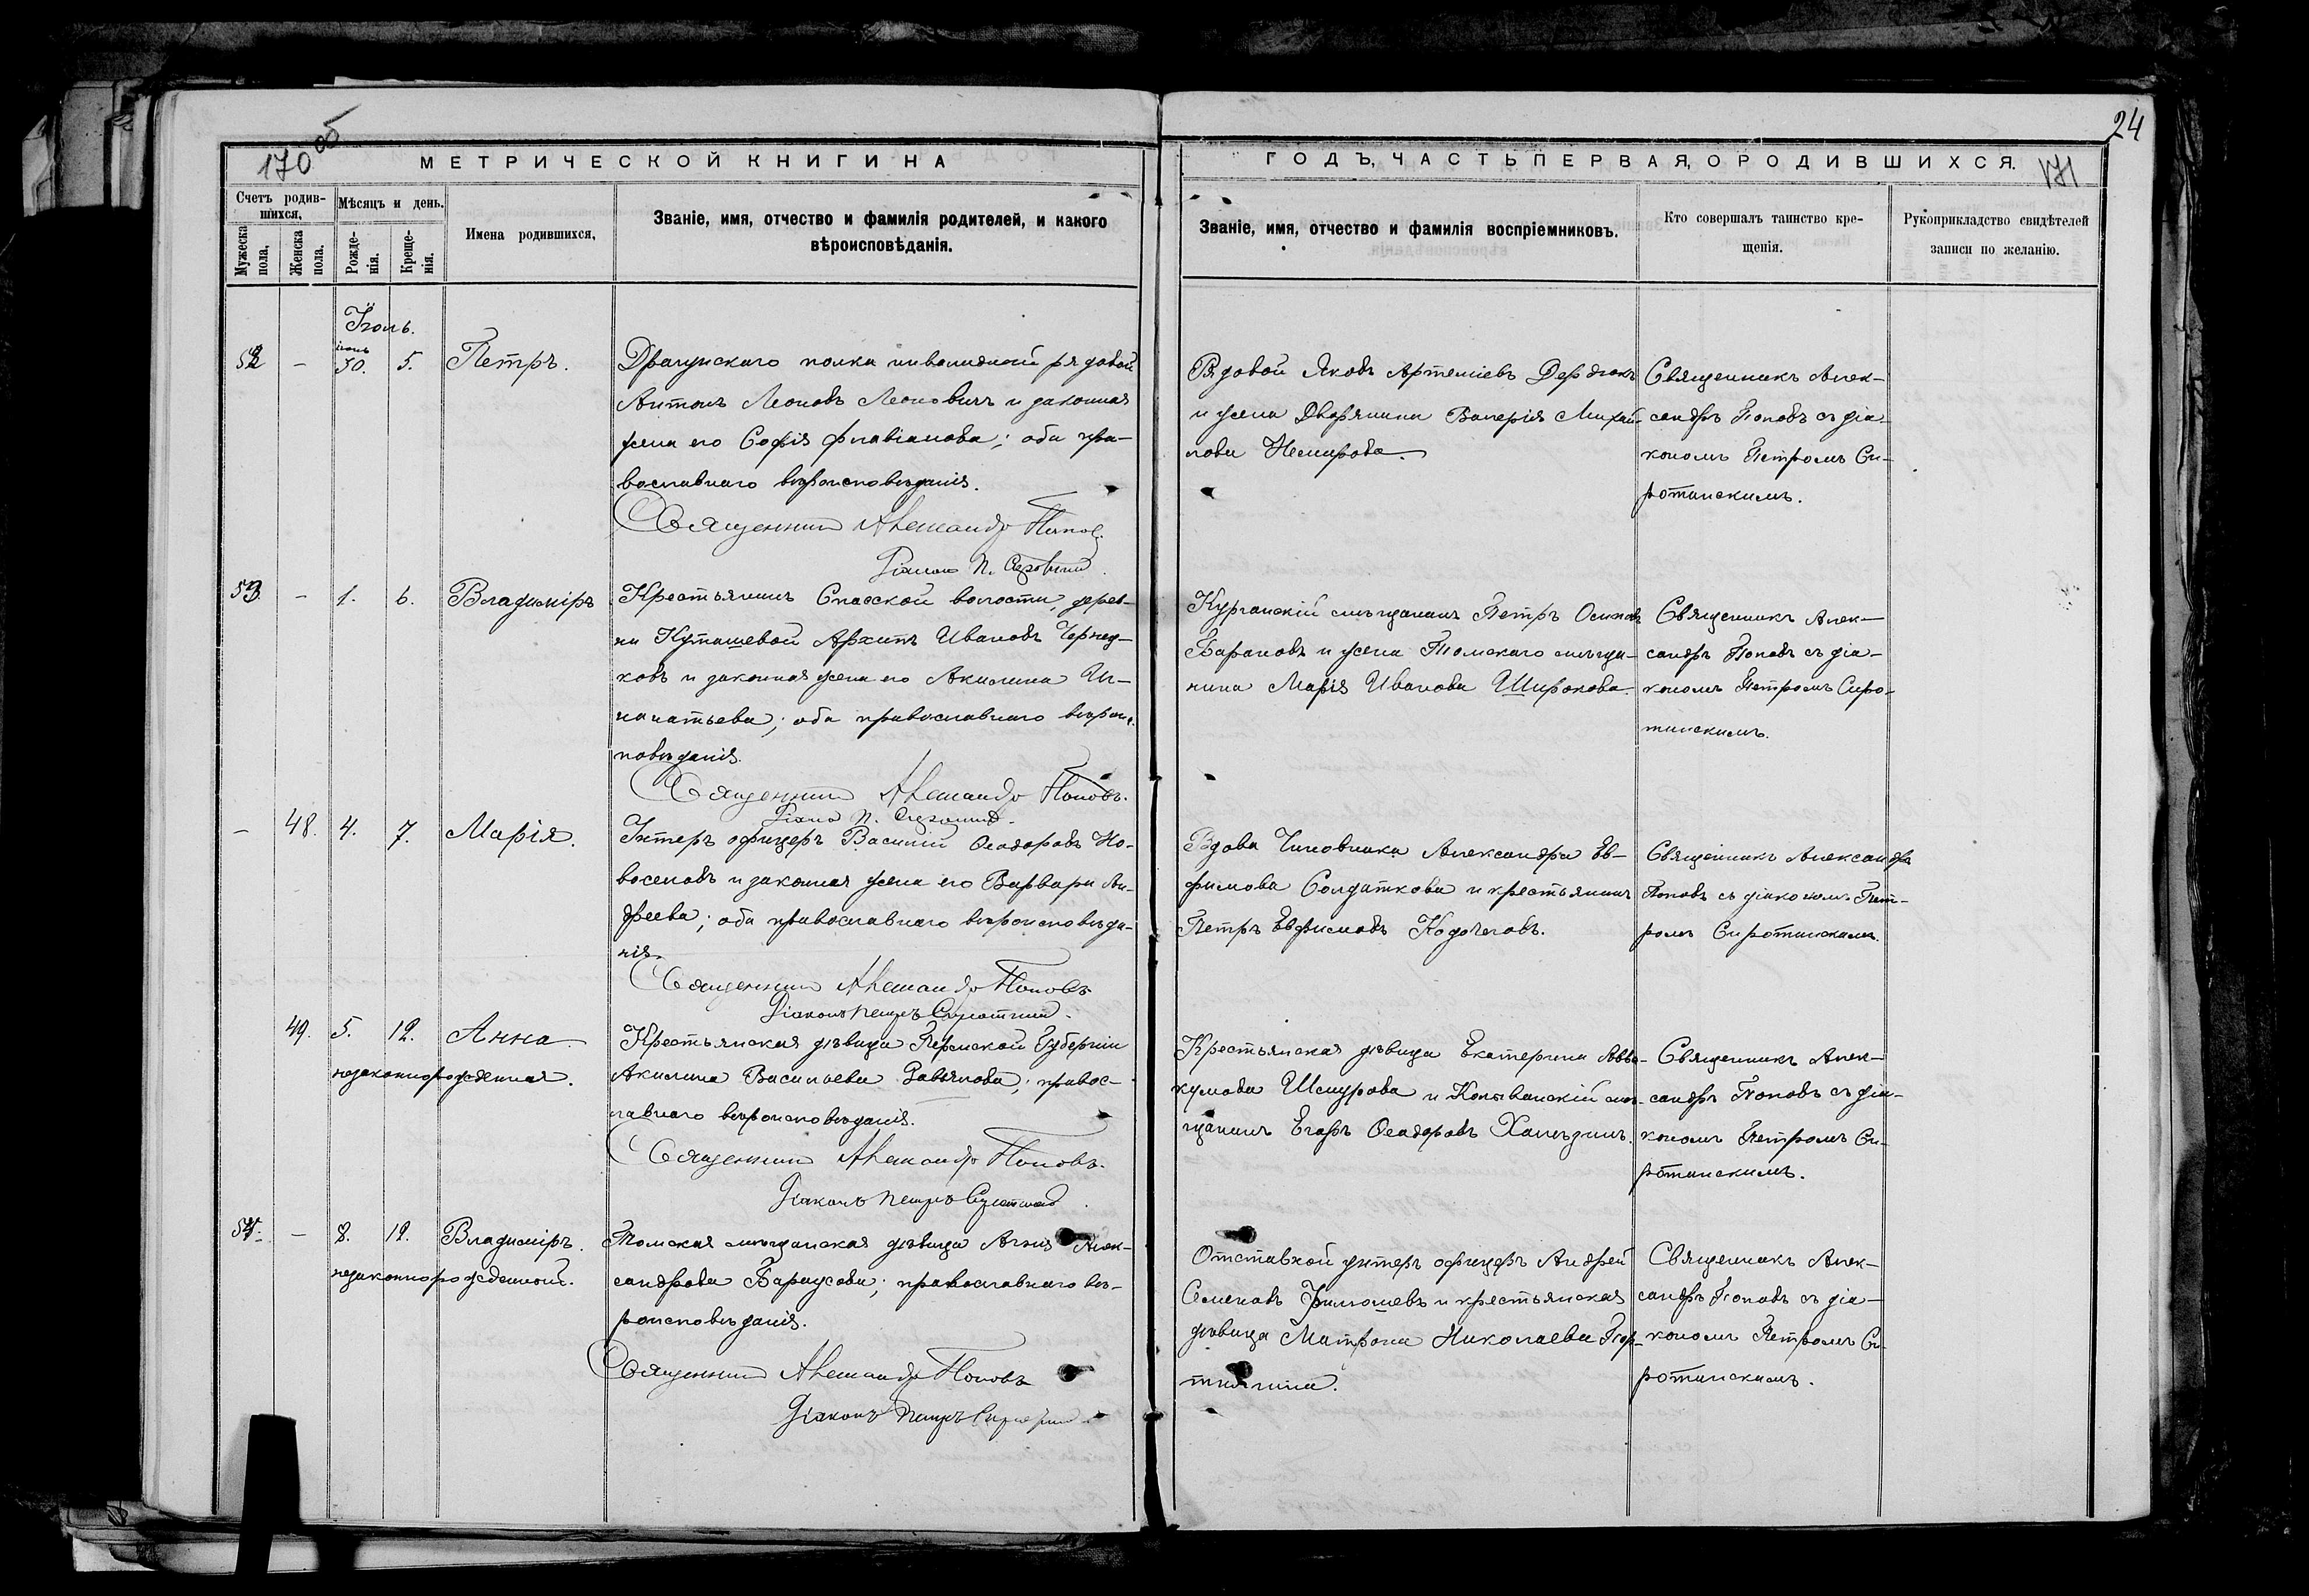 24
170 об
МЕТРИЧЕСКОЙ КНИГИ НА
ГОДЪ, ЧАСТЬ ПЕРВАЯ, О РОДИВШИХСЯ.
171
Счетъ родив-
шихся.
Мужеска
пола.
Женска
пола.
Мѣсяцъ и день.
Рожде-
нія.
Креще-
нія.
Имена родившихся.
Званіе, имя, отчество и фамилія родителей, и какого
вѣроисповѣданія.
Званіе, имя, отчество и фамилія воспріемниковъ.
Кто совершалъ таинство кре-
щенія.
Рукоприкладство свидѣтелей
записи по желанію.
Іюль.
52 - іюнь 30. 5. Петръ.
Драгунскаго полка инвалидной рядовой
Антонъ Леоновъ Леоновичъ и законная
жена его Софія Флавіанова; оба пра-
вославнаго вѣроисповѣданія.
Священникъ Александръ Попов
Діаконъ П.
Рядовой Яковъ Артеміевъ
и жена Дворянина Валерія Михай-
лова Немирова.
Священникъ Алек-
сандръ Поповъ съ діа-
кономъ Петромъ Си-
ротинскимъ.
53. - 1. 6. Владиміръ.
Крестьянинъ Спасской волости, дерев-
ни Кугушевой Архипъ Ивановъ
ковъ и законная жена его Акилина Иг-
натьева; оба православнаго вѣроис-
повѣданія.
Священникъ Александръ Поповъ.
Діаконъ П.
Курганскій мѣщанинъ Петръ Осиповъ
Барановъ и жена Томскаго мѣща-
нина Марія Иванова Широкова.
Священникъ Алек-
сандръ Поповъ съ діа-
кономъ Петромъ Сиро-
тинскимъ.
- 48. 4. 7. Марія.
Унтеръ офицеръ Василій Ѳеодоровъ Но-
воселовъ и законная жена его Варвара Ан-
дреева; оба православнаго вѣроисповѣда-
нія.
Священникъ Александръ Поповъ
Діаконъ Петръ Сиротинскій.
Вдова Чиновника Александра Ев-
фимова Солдаткова и крестьянинъ
Петръ Евфимовъ
Священникъ Александръ
Поповъ съ діакономъ Пет-
ромъ Сиротинскимъ.
49. 5. 12. Анна
незаконнорожденная.
Крестьянская дѣвица Пермской Губерніи
Акилина Васильева Завьялова; правос-
лавнаго вѣроисповѣданія.
Священникъ Александръ Поповъ.
Діаконъ Петръ Сиротинскій
Крестьянская дѣвица Екатерина Авва-
кумова Шемурова и Колыванскій мѣ-
щанинъ Егоръ Ѳеодоровъ
Священникъ Алек-
сандръ Поповъ съ діа-
кономъ Петромъ Си-
ротинскимъ.
54. - 8. 12. Владиміръ.
незаконнорожденной.
Томская мѣщанская дѣвица Агнія Алек-
сандрова Барнусова; православнаго вѣ-
роисповѣданія.
Священникъ Александръ Поповъ
Діаконъ Петръ Сиротинскій
Отставной унтеръ офицеръ Андрей
Семеновъ и крестьянская
дѣвица Матрона Николаева
Священникъ Алек-
сандръ Поповъ съ діа-
кономъ Петромъ Си-
ротинскимъ.